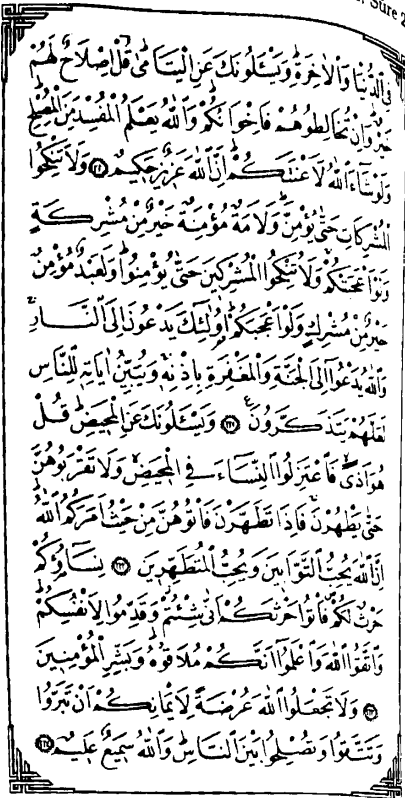 Sûre 2
فِى الدُّنْيَا وَالْاٰخِرَةِۜ وَيَسْـَٔلُونَكَ عَنِ الْيَتَامٰىۜ قُلْ اِصْلَاحٌ لَهُمْ
خَيْرٌۜ وَاِنْ تُخَالِطُوهُمْ فَاِخْوَانُكُمْۜ وَاللّٰهُ يَعْلَمُ الْمُفْسِدَ مِنَ الْمُصْلِحِۜ
وَلَوْ شَٓاءَ اللّٰهُ لَاَعْنَتَكُمْۜ اِنَّ اللّٰهَ عَزِيزٌ حَكِيمٌ ﴿٢٢٠﴾ وَلَا تَنْكِحُوا
الْمُشْرِكَاتِ حَتّٰى يُؤْمِنَّۜ وَلَاَمَةٌ مُؤْمِنَةٌ خَيْرٌ مِنْ مُشْرِكَةٍ
وَلَوْ اَعْجَبَتْكُمْۚ وَلَا تُنْكِحُوا الْمُشْرِكِينَ حَتّٰى يُؤْمِنُواۜ وَلَعَبْدٌ مُؤْمِنٌ
خَيْرٌ مِنْ مُشْرِكٍ وَلَوْ اَعْجَبَكُمْۜ اُو۬لٰٓئِكَ يَدْعُونَ اِلَى النَّارِۚ
وَاللّٰهُ يَدْعُٓوا اِلَى الْجَنَّةِ وَالْمَغْفِرَةِ بِاِذْنِهٖۚ وَيُبَيِّنُ اٰيَاتِهٖ لِلنَّاسِ
لَعَلَّهُمْ يَتَذَكَّرُونَ ﴿٢٢١﴾ وَيَسْـَٔلُونَكَ عَنِ الْمَحِيضِۜ قُلْ
هُوَ اَذًىۙ فَاعْتَزِلُوا النِّسَٓاءَ فِى الْمَحِيضِۙ وَلَا تَقْرَبُوهُنَّ
حَتّٰى يَطْهُرْنَۚ فَاِذَا تَطَهَّرْنَ فَأْتُوهُنَّ مِنْ حَيْثُ اَمَرَكُمُ اللّٰهُۜ
اِنَّ اللّٰهَ يُحِبُّ التَّوَّابِينَ وَيُحِبُّ الْمُتَطَهِّرِينَ ﴿٢٢٢﴾ نِسَٓاؤُكُمْ
حَرْثٌ لَكُمْۖ فَأْتُوا حَرْثَكُمْ اَنّٰى شِئْتُمْۘ وَقَدِّمُوا لِاَنْفُسِكُمْۜ
وَاتَّقُوا اللّٰهَ وَاعْلَمُٓوا اَنَّكُمْ مُلَاقُوهُۜ وَبَشِّرِ الْمُؤْمِنِينَ
﴿٢٢٣﴾ وَلَا تَجْعَلُوا اللّٰهَ عُرْضَةً لِاَيْمَانِكُمْ اَنْ تَبَرُّوا
وَتَتَّقُوا وَتُصْلِحُوا بَيْنَ النَّاسِۜ وَاللّٰهُ سَمِيعٌ عَلِيمٌ ﴿٢٢٤﴾